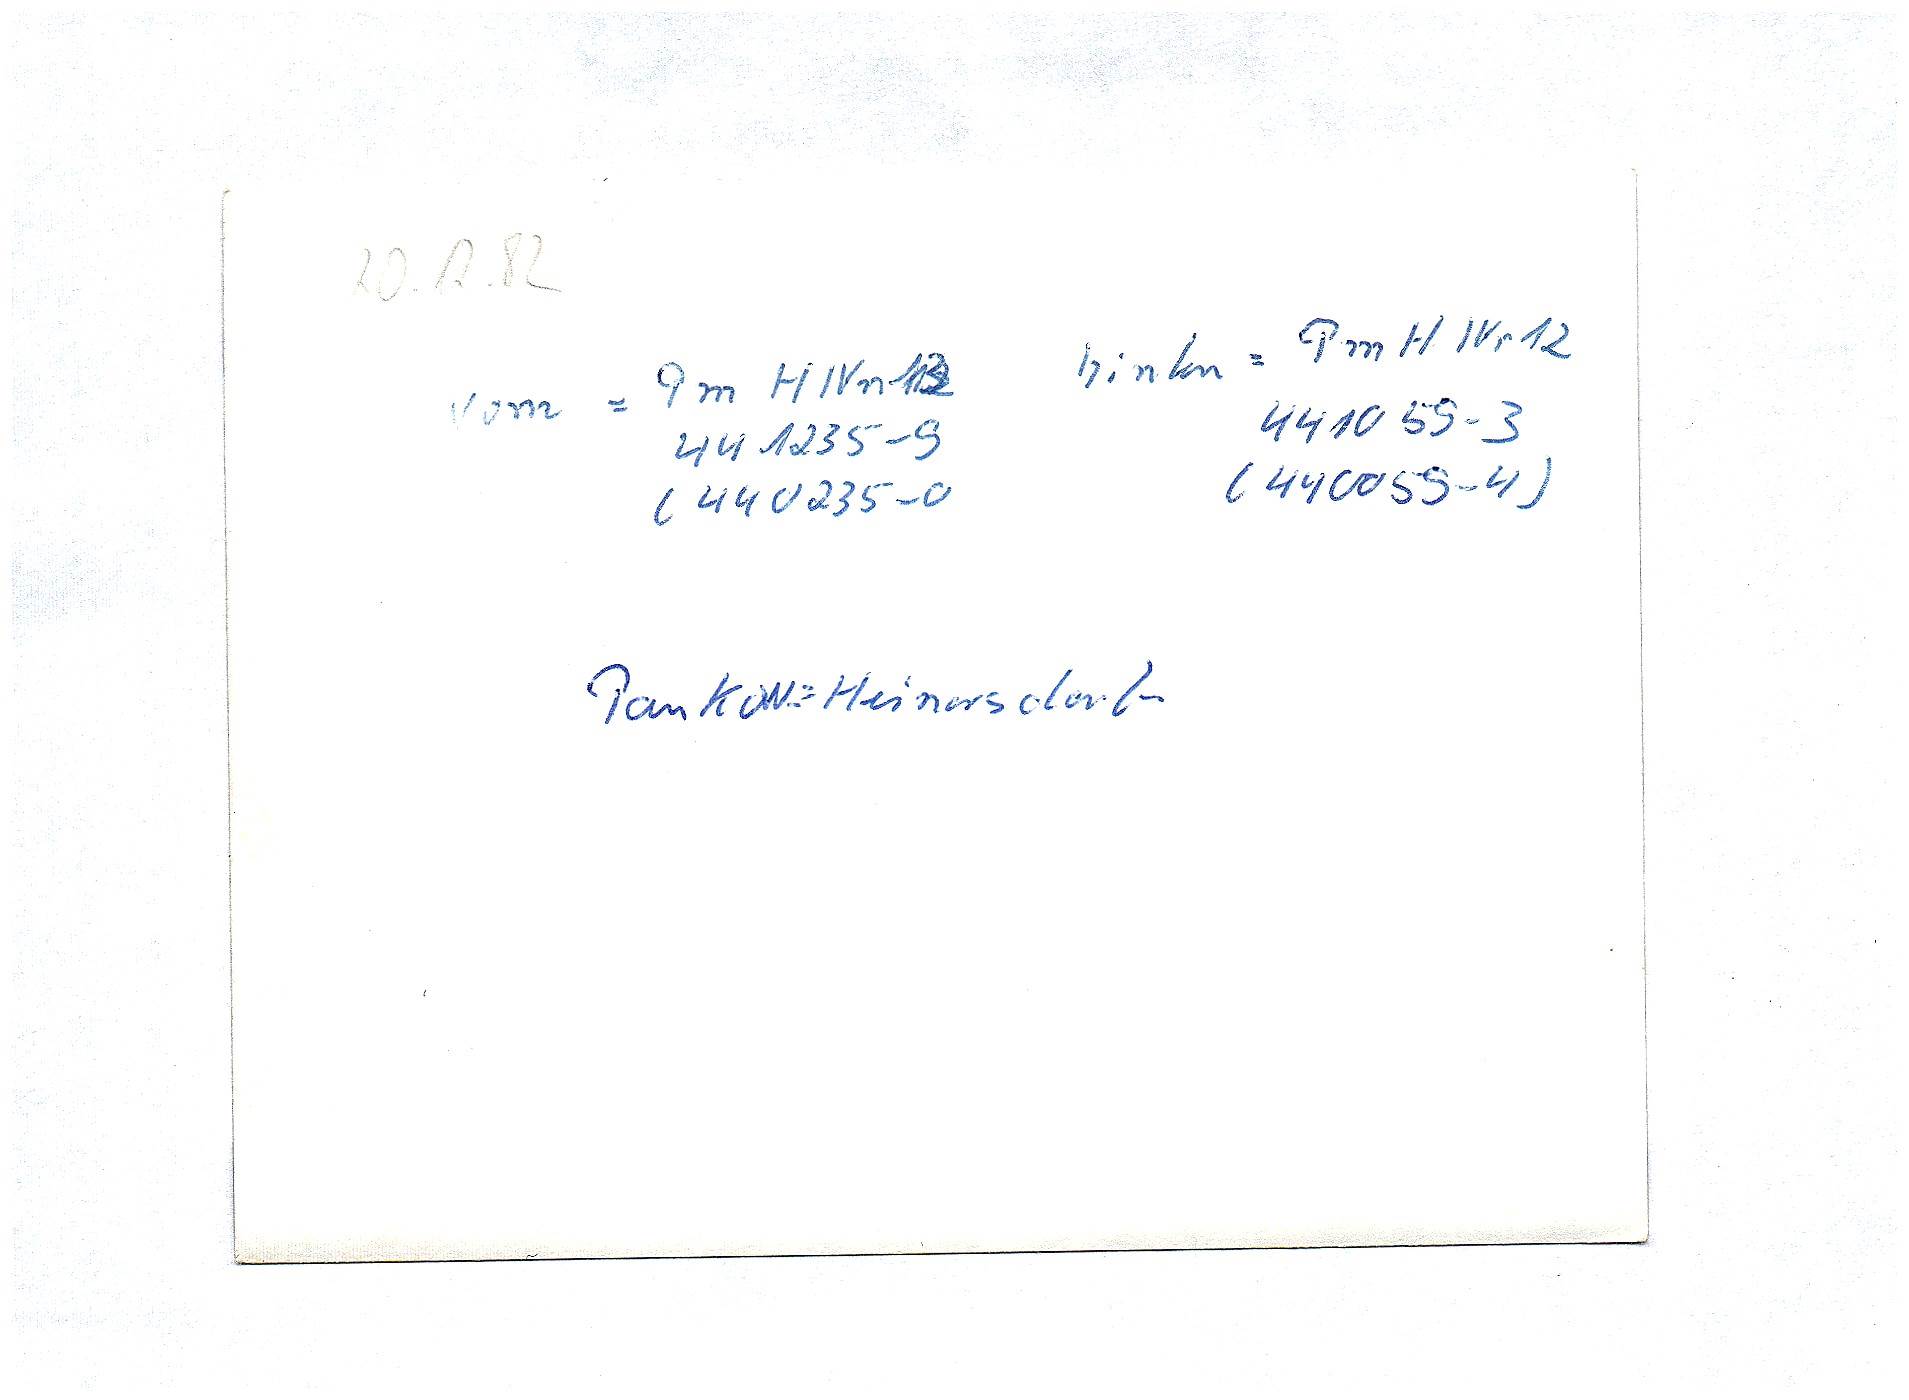 20.12.82
vorn = Pm H IV n 12
441235-9
(440235-0
hinten = Pm H IV r 12
441059-3
(440059-4)
Pankow=Heinersdorf